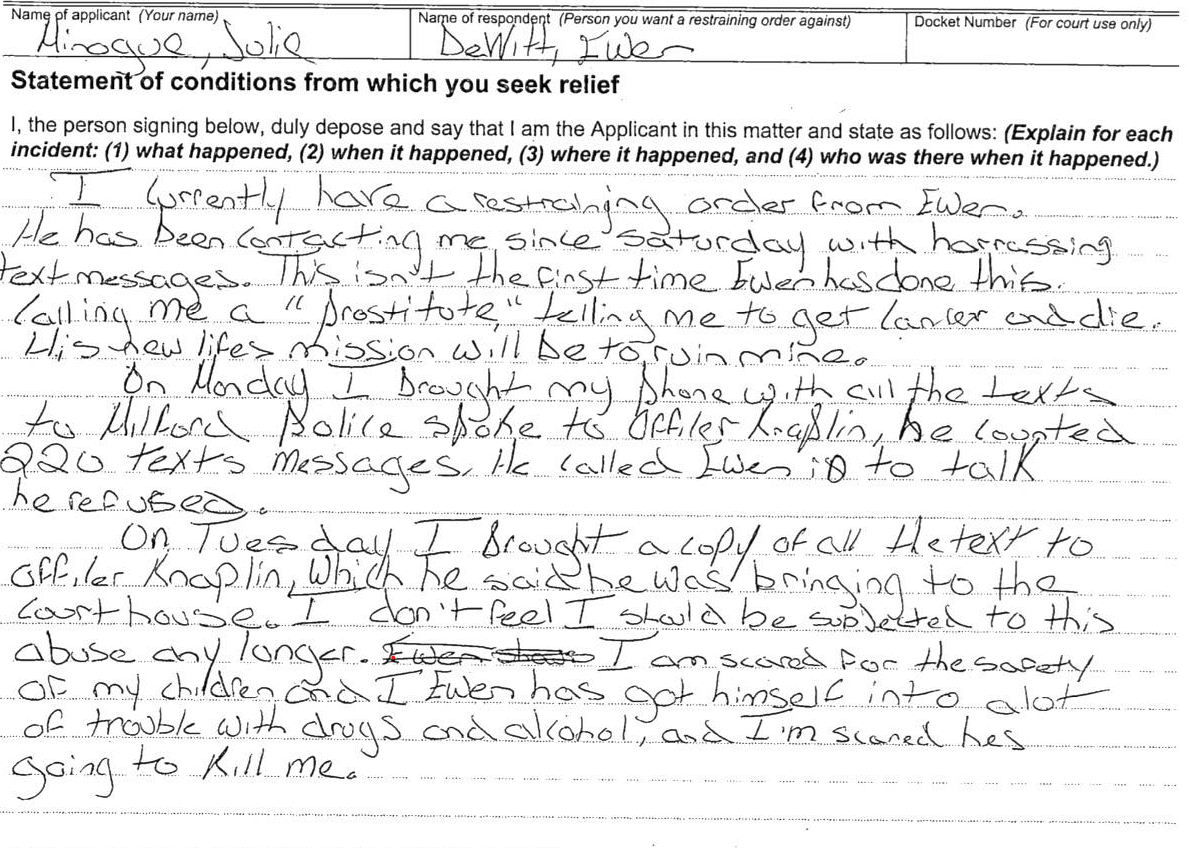 Name of applicant (Your name) Name of respondent (Person you want a restraining order against) Docket Number (For court use only)
Minogue, Julie DeWitt, Ewen
Statement of conditions from which you seek relief
I, the person signing below, duly depose and say that I am the Applicant in this matter and state as follows: (Explain for each
incident: (1) what happened, (2) when it happened, (3) where it happened, and (4) who was there when it happened.)
I currently have a restraining order from Ewen.
He has been contacting me since saturday with harrassing
text messages. This isn't the first time Ewen has done this.
Calling me a "prostitute," telling me to get cancer and die.
His new lifes mission will be to ruin mine.
On Monday I brought my phone with all the texts
to Milford Police spoke to Officer Knaplin, he counted
220 texts messages. He called Ewen to talk
he refused.
On Tuesday I brought a copy of all the text to
officer Knaplin, which he said he was bringing to the
courthouse. I don't feel I should be subjected to this
abuse any longer. I am scared for the safety
of my children and I Ewen has got himself into alot
of trouble with drugs and alcohol, and I'm scared hes
going to kill me.